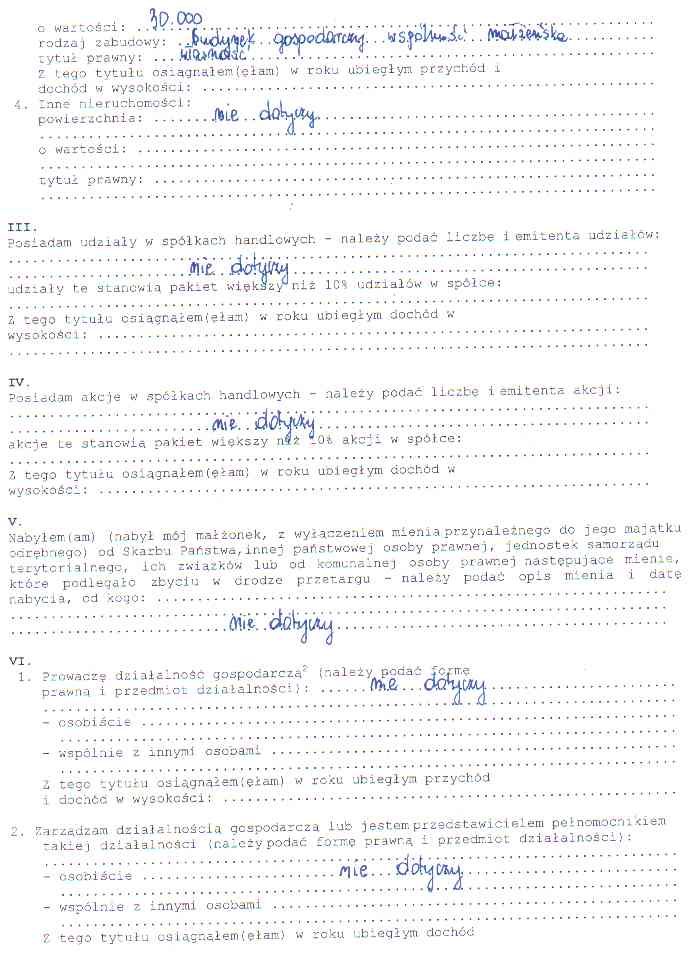 o wartości: ...30.000...
rodzaj zabudowy: ..budynek..gospodarczy..wspólność..małżeńska
tytuł prawny: ...własność...
Z tego tytułu osiągnąłem(ęłam) w roku ubiegłym przychód i
dochód w wysokości: ...
4. Inne nieruchomości:
powierzchnia: ...nie..dotyczy...
o wartości: ...
tytuł prawny: ...
III.
Posiadam udziały w spółkach handlowych - należy podać liczbę i emitenta udziałów:
...nie..dotyczy...
udziały te stanowią pakiet większy niż 10% udziałów w spółce:
Z tego tytułu osiągnąłem(ęłam) w roku ubiegłym dochód w
wysokości: ...
IV.
Posiadam akcje w spółkach handlowych - należy podać liczbę i emitenta akcji:
...nie..dotyczy...
akcje te stanowią pakiet większy niż 10% akcji w spółce:
Z tego tytułu osiągnąłem(ęłam) w roku ubiegłym dochód w
wysokości: ...
V.
Nabyłem(am) (nabył mój małżonek, z wyłączeniem mienia przynależnego do jego majątku
odrębnego) od Skarbu Państwa, innej państwowej osoby prawnej, jednostek samorządu
terytorialnego, ich związków lub od komunalnej osoby prawnej następujące mienie,
które podlegało zbyciu w drodze przetargu - należy podać opis mienia i datę
nabycia, od kogo: ...
...nie..dotyczy...
VI.
1. Prowadzę działalność gospodarczą² (należy podać formę
prawną i przedmiot działalności): ...nie...dotyczy...
- osobiście ...
- wspólnie z innymi osobami ...
Z tego tytułu osiągnąłem(ęłam) w roku ubiegłym przychód
i dochód w wysokości: ...
2. Zarządzam działalnością gospodarczą lub jestem przedstawicielem pełnomocnikiem
takiej działalności (należy podać formę prawną i przedmiot działalności):
- osobiście ...nie...dotyczy...
- wspólnie z innymi osobami ...
Z tego tytułu osiągnąłem(ęłam) w roku ubiegłym dochód